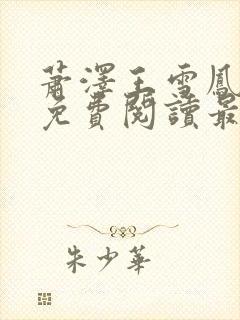 蕭澤王雪鳳
免費閱讀最
朱少華